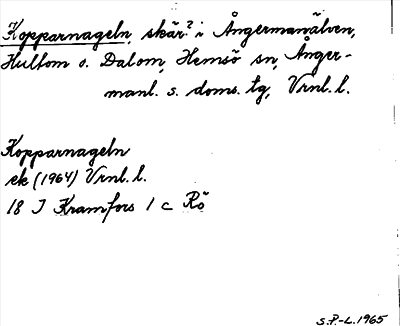 Kopparnageln, skär? i Ångermanälven,
Hultom o. Dalom, Hemsö sn, Ånger-
manl. s. doms. tg, Vrnl. l.
Kopparnageln
ek (1964) Vrnl. l.
18 J Kramfors 1 c Rö
S.P.-L. 1965